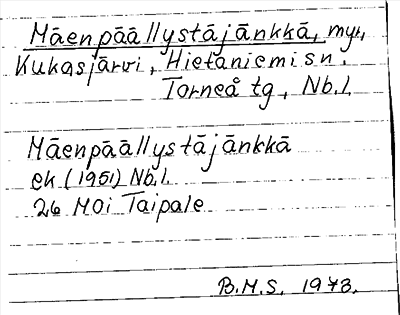 Mäenpäällystäjänkkä, myr,
Kukasjärvi, Hietaniemi sn.
Torneå tg, Nb.l.
Mäenpäällystäjänkkä
ek (1951) Nb.l.
26 M0i Taipale
B.M.S. 1973.